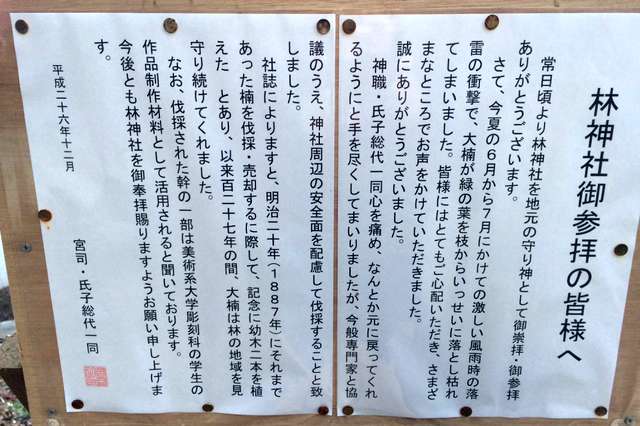 林神社御参拝の皆様へ
常日頃より林神社を地元の守り神として御崇拝・御参拝
ありがとうございます。
さて、今夏の6月から7月にかけての激しい風雨時の落
雷の衝撃で、大楠が緑の葉を枝からいっせいに落とし枯れ
てしまいました。皆様にはとてもご心配いただき、さまざ
まなところでお声をかけていただきました。
誠にありがとうございました。
神職・氏子総代一同心を痛め、なんとか元に戻ってくれ
るようにと手を尽くしてまいりましたが、今般専門家と協
議のうえ、神社周辺の安全面を配慮して伐採することと致
しました。
社誌によりますと、明治二十年(1887年)にそれまで
あった楠を伐採・売却するに際して、記念に幼木二本を植
えた とあり、以来百二十七年の間、大楠は林の地域を見
守り続けてくれました。
なお、伐採された幹の一部は美術系大学彫刻科の学生の
作品制作材料として活用されると聞いております。
今後とも林神社を御奉拝賜りますようお願い申し上げま
す。
平成二十六年十二月
宮司・氏子総代一同